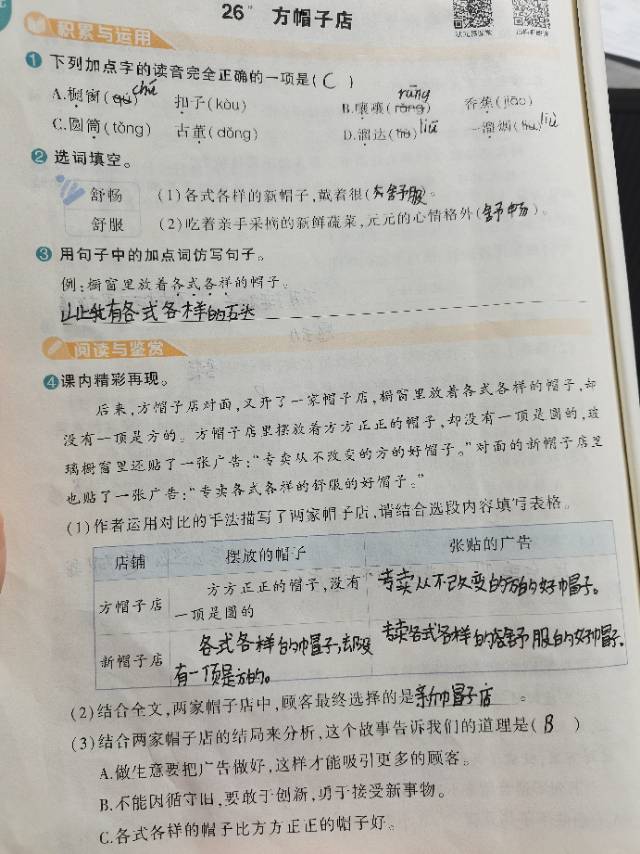 26* 方帽子店
积累与运用
1 下列加点字的读音完全正确的一项是( C )
A.橱窗( ) chú 扣子(kòu) B.嚷嚷(rāng) rāng 香蕉(jiāo)
C.圆筒(tǒng) 古董(dǒng) D.溜达( ) liū 一溜烟( ) liù
2 选词填空。
舒畅 (1)各式各样的新帽子,戴着很( 舒服 )。
舒服 (2)吃着亲手采摘的新鲜蔬菜,元元的心情格外( 舒畅 )。
3 用句子中的加点词仿写句子。
例:橱窗里放着各式各样的帽子。
山上长有各式各样的石头
阅读与鉴赏
4 课内精彩再现。
后来,方帽子店对面,又开了一家帽子店,橱窗里放着各式各样的帽子,却
没有一顶是方的。方帽子店里摆放着方方正正的帽子,却没有一顶是圆的,玻
璃橱窗里还贴了一张广告:“专卖从不改变的方的好帽子。”对面的新帽子店里
也贴了一张广告:“专卖各式各样的舒服的好帽子。”
(1)作者运用对比的手法描写了两家帽子店,请结合选段内容填写表格。
店铺 摆放的帽子 张贴的广告
方帽子店 方方正正的帽子,没有 专卖从不改变的方的好帽子。
一顶是圆的
新帽子店 各式各样的帽子,却没 专卖各式各样的舒服的好帽子.
有一顶是方的。
(2)结合全文,两家帽子店中,顾客最终选择的是新帽子店。
(3)结合两家帽子店的结局来分析,这个故事告诉我们的道理是( B )
A.做生意要把广告做好,这样才能吸引更多的顾客。
B.不能因循守旧,要敢于创新,勇于接受新事物。
C.各式各样的帽子比方方正正的帽子好。